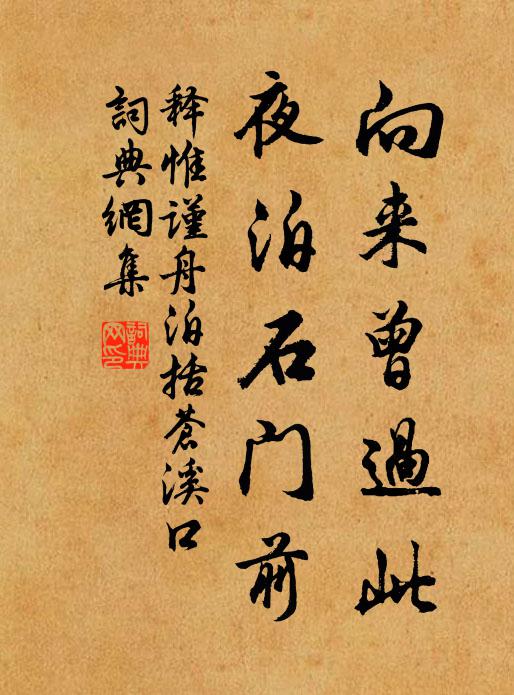 向来曾過此
夜泊石门前
释惟谨舟泊括蒼溪口
詞典網集
詞典
网印